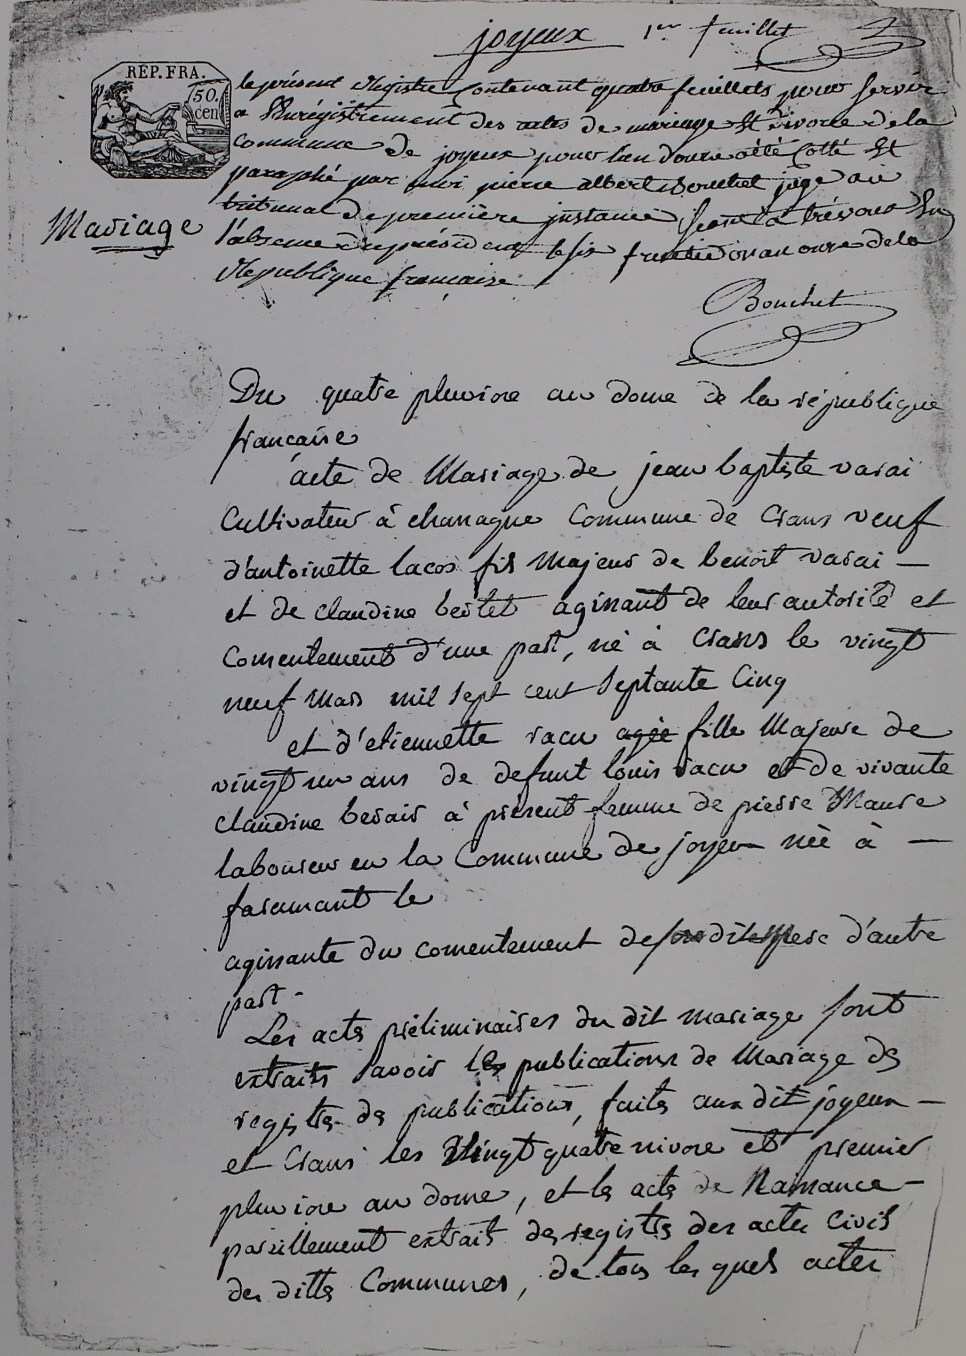 joyeux 1er feuillet
REP. FRA.
50.
cen
le présent Registre Contenant quatre feuillets pour servir
a L'enrégistrement des actes de mariage Et divorce de la
Commune de joyeux pour l'an douze a été Cotté Et
paraphé par moi pierre albert Bouchet juge au
tribunal de première instance Séant à trévoux En
l'absence du président le six fructidor an onze de la
République française
Mariage
Bouchet
Du quatre pluviose an douze de la république
française
acte de Mariage de jean baptiste varai
Cultivateur à chanagne Commune de Crans veuf
d'antoinette lacos fils Majeur de benoit varai —
et de claudine berlet agissant de leur autorité et
Consentement d'une part, né à Crans le vingt
neuf Mars mil sept cent Septante Cinq
et d'etiennette racu agée fille Majeure de
vingt un ans de defunt louis racu et de vivante
claudine berair à présent femme de pierre Maure
laboureur en la Commune de joyeux néé à —
faramant le
agissante du consentement de sa dite Mere d'autre
part -
Les actes préliminaires du dit mariage sont
extraits savoir les publications de Mariage des
registres des publications, faites aux dit joyeux —
et Crans les Vingt quatre nivose et premier
pluviose an douze, et les actes de Naissance —
pareillement extrait des registres des actes Civils
des dittes Communes, de tous les quels actes